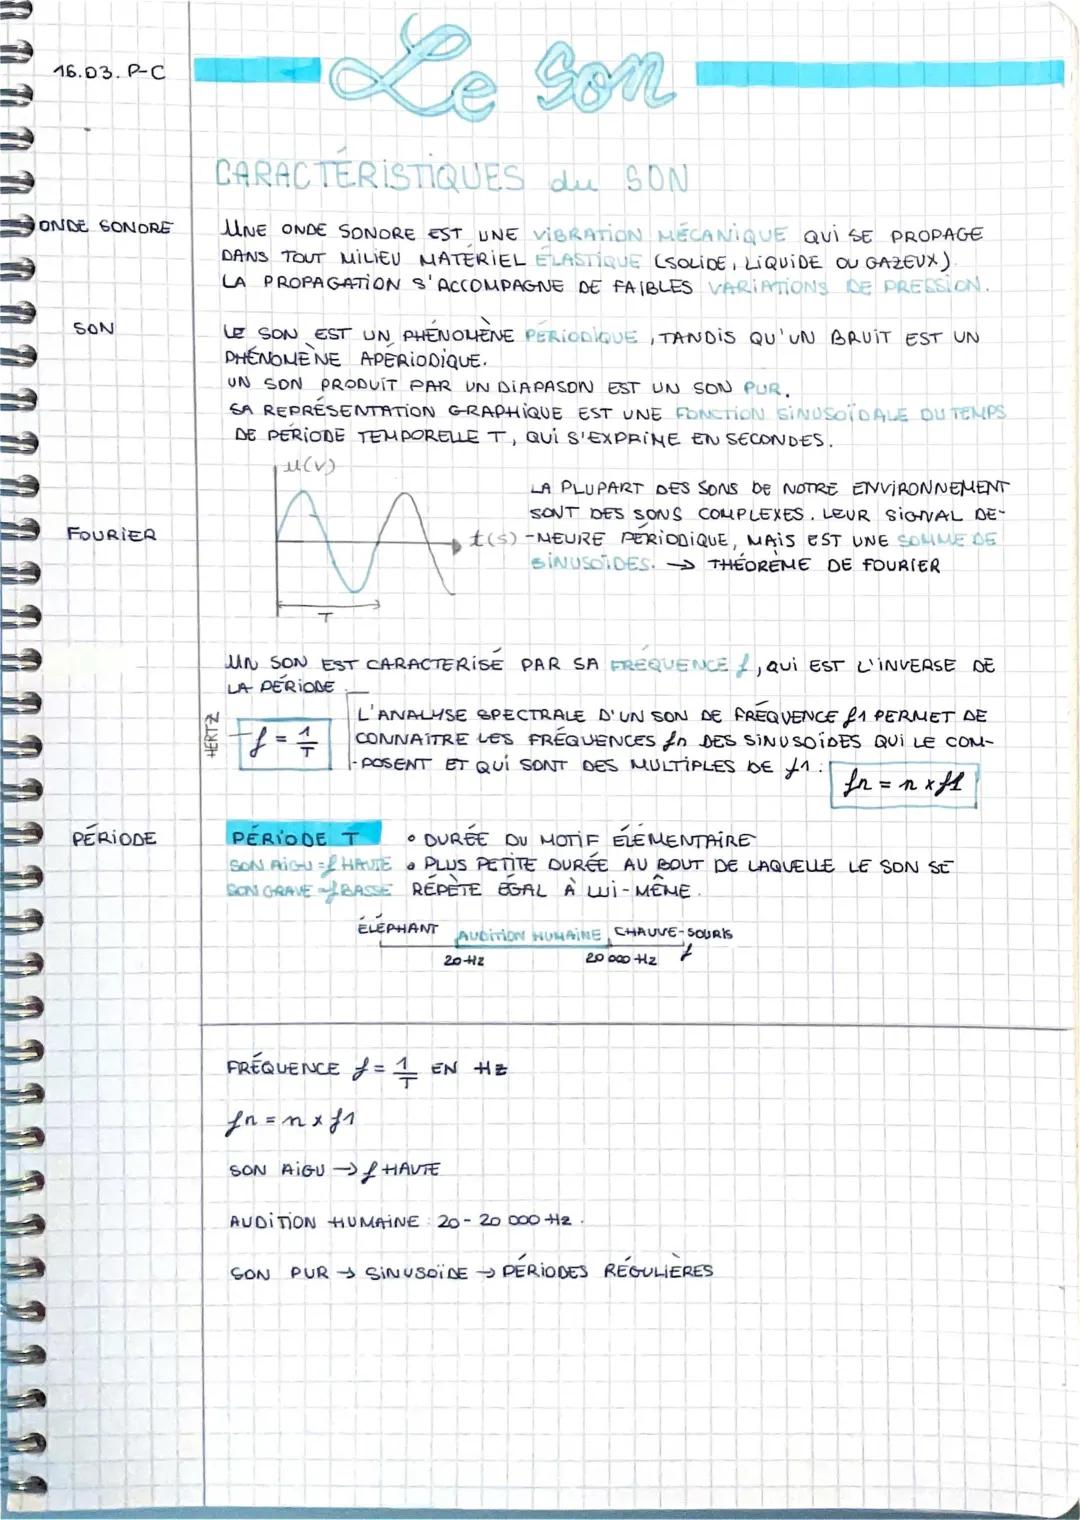 16.03. P-C
Le son
CARACTÉRISTIQUES du SON
ONDE SONORE
UNE ONDE SONORE EST UNE VIBRATION MÉCANIQUE QUI SE PROPAGE
DANS TOUT MILIEU MATÉRIEL ÉLASTIQUE (SOLIDE, LIQUIDE OU GAZEUX).
LA PROPAGATION S'ACCOMPAGNE DE FAIBLES VARIATIONS DE PRESSION.
SON
LE SON EST UN PHÉNOMÈNE PÉRIODIQUE, TANDIS QU'UN BRUIT EST UN
PHÉNOMÈNE APÉRIODIQUE.
UN SON PRODUIT PAR UN DIAPASON EST UN SON PUR.
SA REPRÉSENTATION GRAPHIQUE EST UNE FONCTION SINUSOÏDALE DU TEMPS
DE PÉRIODE TEMPORELLE T, QUI S'EXPRIME EN SECONDES.
u(V)
t(s)
T
FOURIER
LA PLUPART DES SONS DE NOTRE ENVIRONNEMENT
SONT DES SONS COMPLEXES. LEUR SIGNAL DE-
-MEURE PÉRIODIQUE, MAIS EST UNE SOMME DE
SINUSOÏDES. → THÉORÈME DE FOURIER
UN SON EST CARACTERISÉ PAR SA FRÉQUENCE f, QUI EST L'INVERSE DE
LA PÉRIODE
HERTZ
f = 1/T
L'ANALYSE SPECTRALE D'UN SON DE FRÉQUENCE f1 PERMET DE
CONNAITRE LES FRÉQUENCES fn DES SINUSOÏDES QUI LE COM-
-POSENT ET QUI SONT DES MULTIPLES DE f1 :
fn = n x f1
PÉRIODE
PÉRIODE T
• DURÉE DU MOTIF ÉLÉMENTAIRE
SON AIGU = f HAUTE • PLUS PETITE DURÉE AU BOUT DE LAQUELLE LE SON SE
SON GRAVE = f BASSE RÉPÈTE ÉGAL À LUI-MÊME.
ÉLÉPHANT AUDITION HUMAINE CHAUVE-SOURIS
20 HZ 20 000 HZ f
FRÉQUENCE f = 1/T EN HZ
fn = n x f1
SON AIGU → f HAUTE
AUDITION HUMAINE : 20 - 20 000 HZ.
SON PUR → SINUSOÏDE → PÉRIODES RÉGULIÈRES